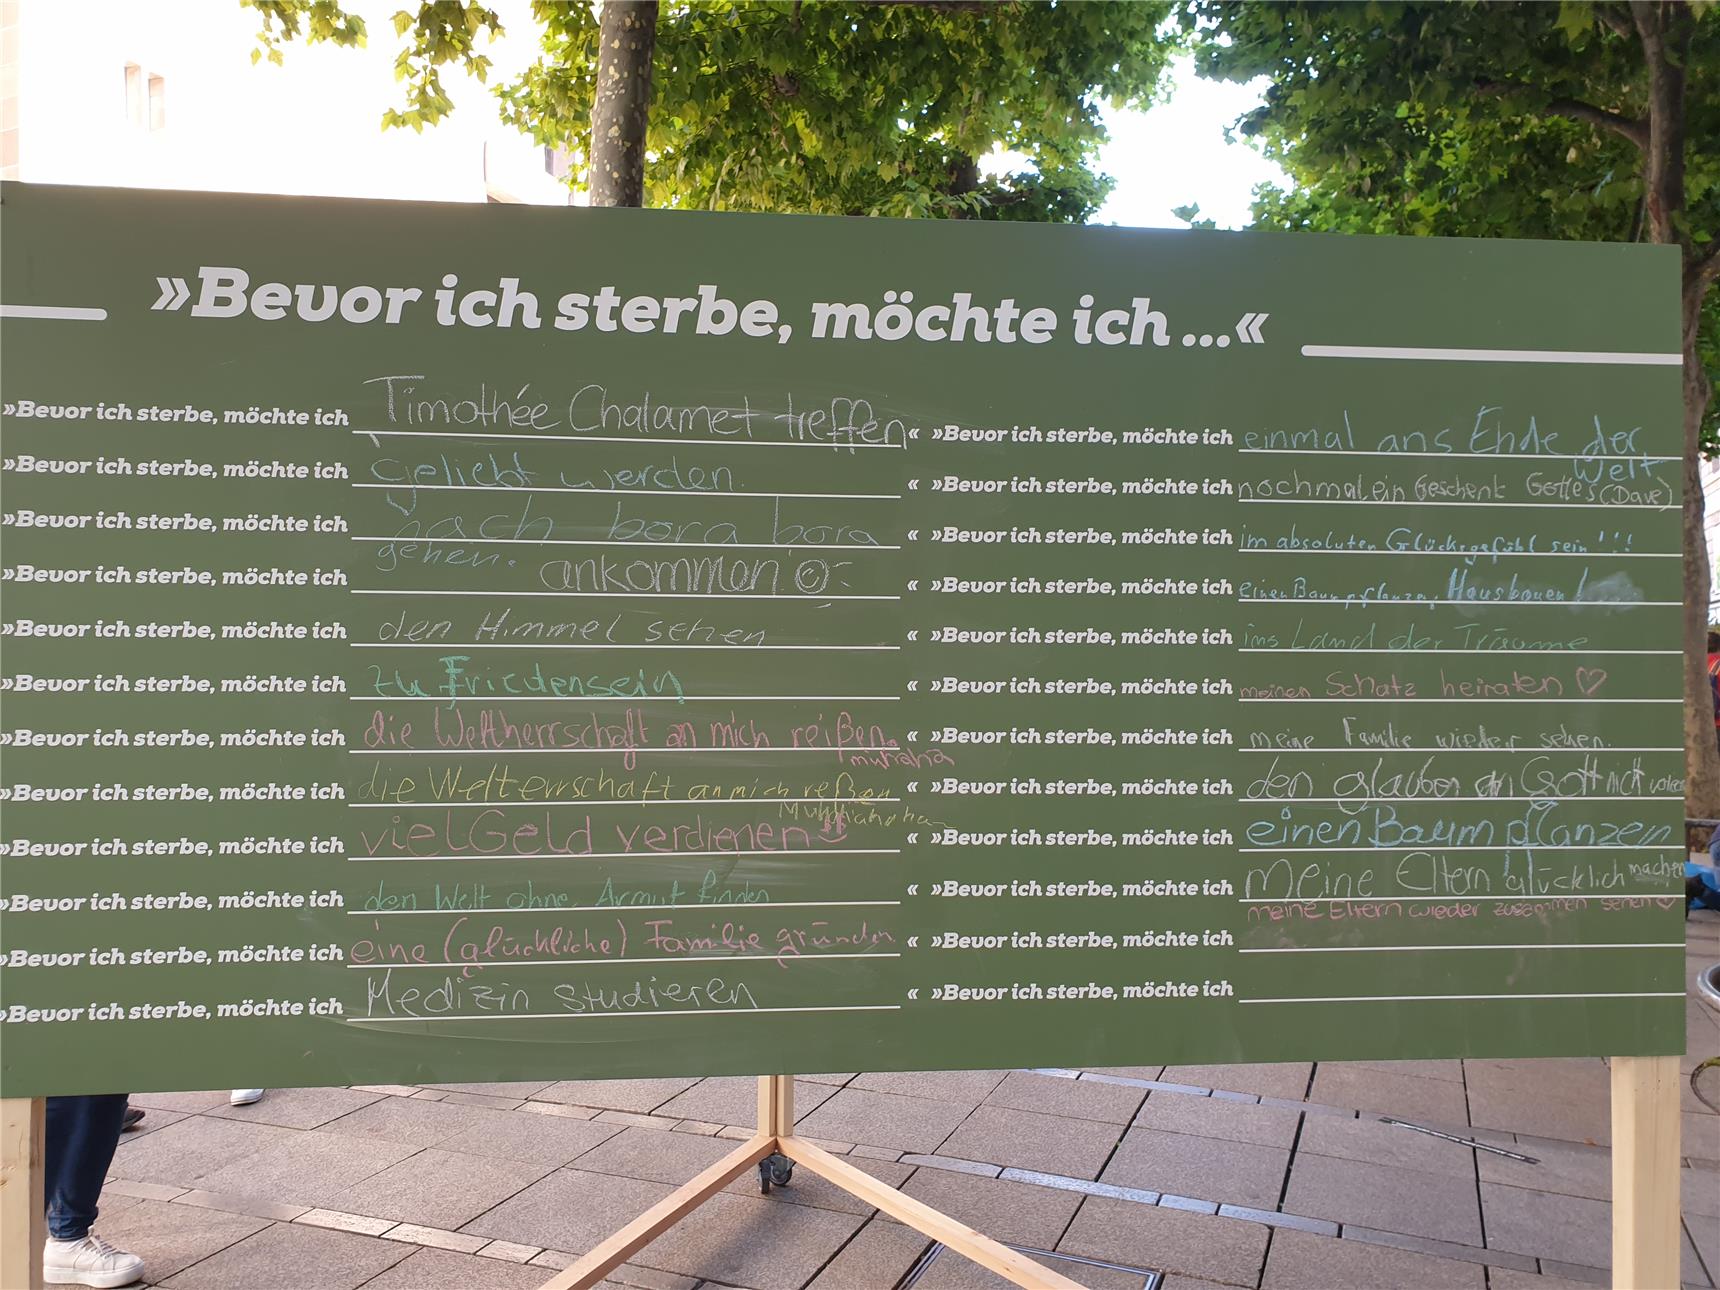 »Bevor ich sterbe, möchte ich ...«
»Bevor ich sterbe, möchte ich Timothée Chalamet treffen«
»Bevor ich sterbe, möchte ich geliebt werden. «
»Bevor ich sterbe, möchte ich nach bora bora «
gehen.
»Bevor ich sterbe, möchte ich ankommen! «
»Bevor ich sterbe, möchte ich den Himmel sehen «
»Bevor ich sterbe, möchte ich zu Friedensein «
»Bevor ich sterbe, möchte ich die Weltherrschaft an mich reißen. «
muhaha
»Bevor ich sterbe, möchte ich die Welterrschaft an mich reßen «
»Bevor ich sterbe, möchte ich viel Geld verdienen «
»Bevor ich sterbe, möchte ich den Welt ohne Armut finden «
»Bevor ich sterbe, möchte ich eine (glückliche) Familie gründen «
»Bevor ich sterbe, möchte ich Medizin studieren «
»Bevor ich sterbe, möchte ich einmal ans Ende der
Welt
»Bevor ich sterbe, möchte ich nochmal ein Geschenk Gottes (Dave)
»Bevor ich sterbe, möchte ich im absoluten Glücksgefühl sein !!!
»Bevor ich sterbe, möchte ich einen Baum pflanzen, Hausbauen!
»Bevor ich sterbe, möchte ich ins Land der Träume
»Bevor ich sterbe, möchte ich meinen Schatz heiraten ♡
»Bevor ich sterbe, möchte ich meine Familie wieder sehen.
»Bevor ich sterbe, möchte ich den glauben an Gott
»Bevor ich sterbe, möchte ich einen Baum pflanzen
»Bevor ich sterbe, möchte ich meine Eltern glücklich machen
meine Eltern wieder zusammen sehen ♡
»Bevor ich sterbe, möchte ich
»Bevor ich sterbe, möchte ich